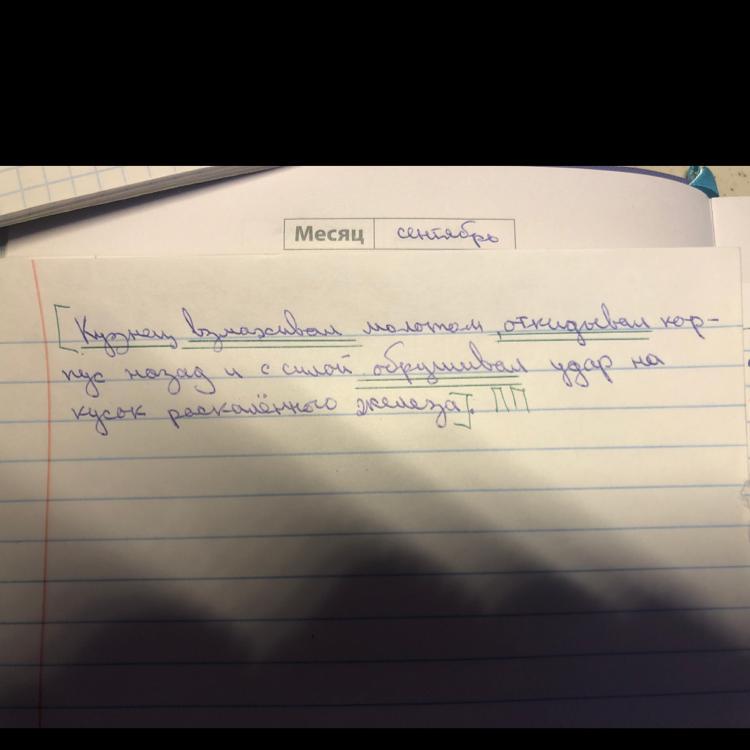 Месяц сентябрь
[Кузнец взмахивал молотом, откидывал кор-
пус назад и с силой обрушивал удар на
кусок раскалённого железа]. ПП